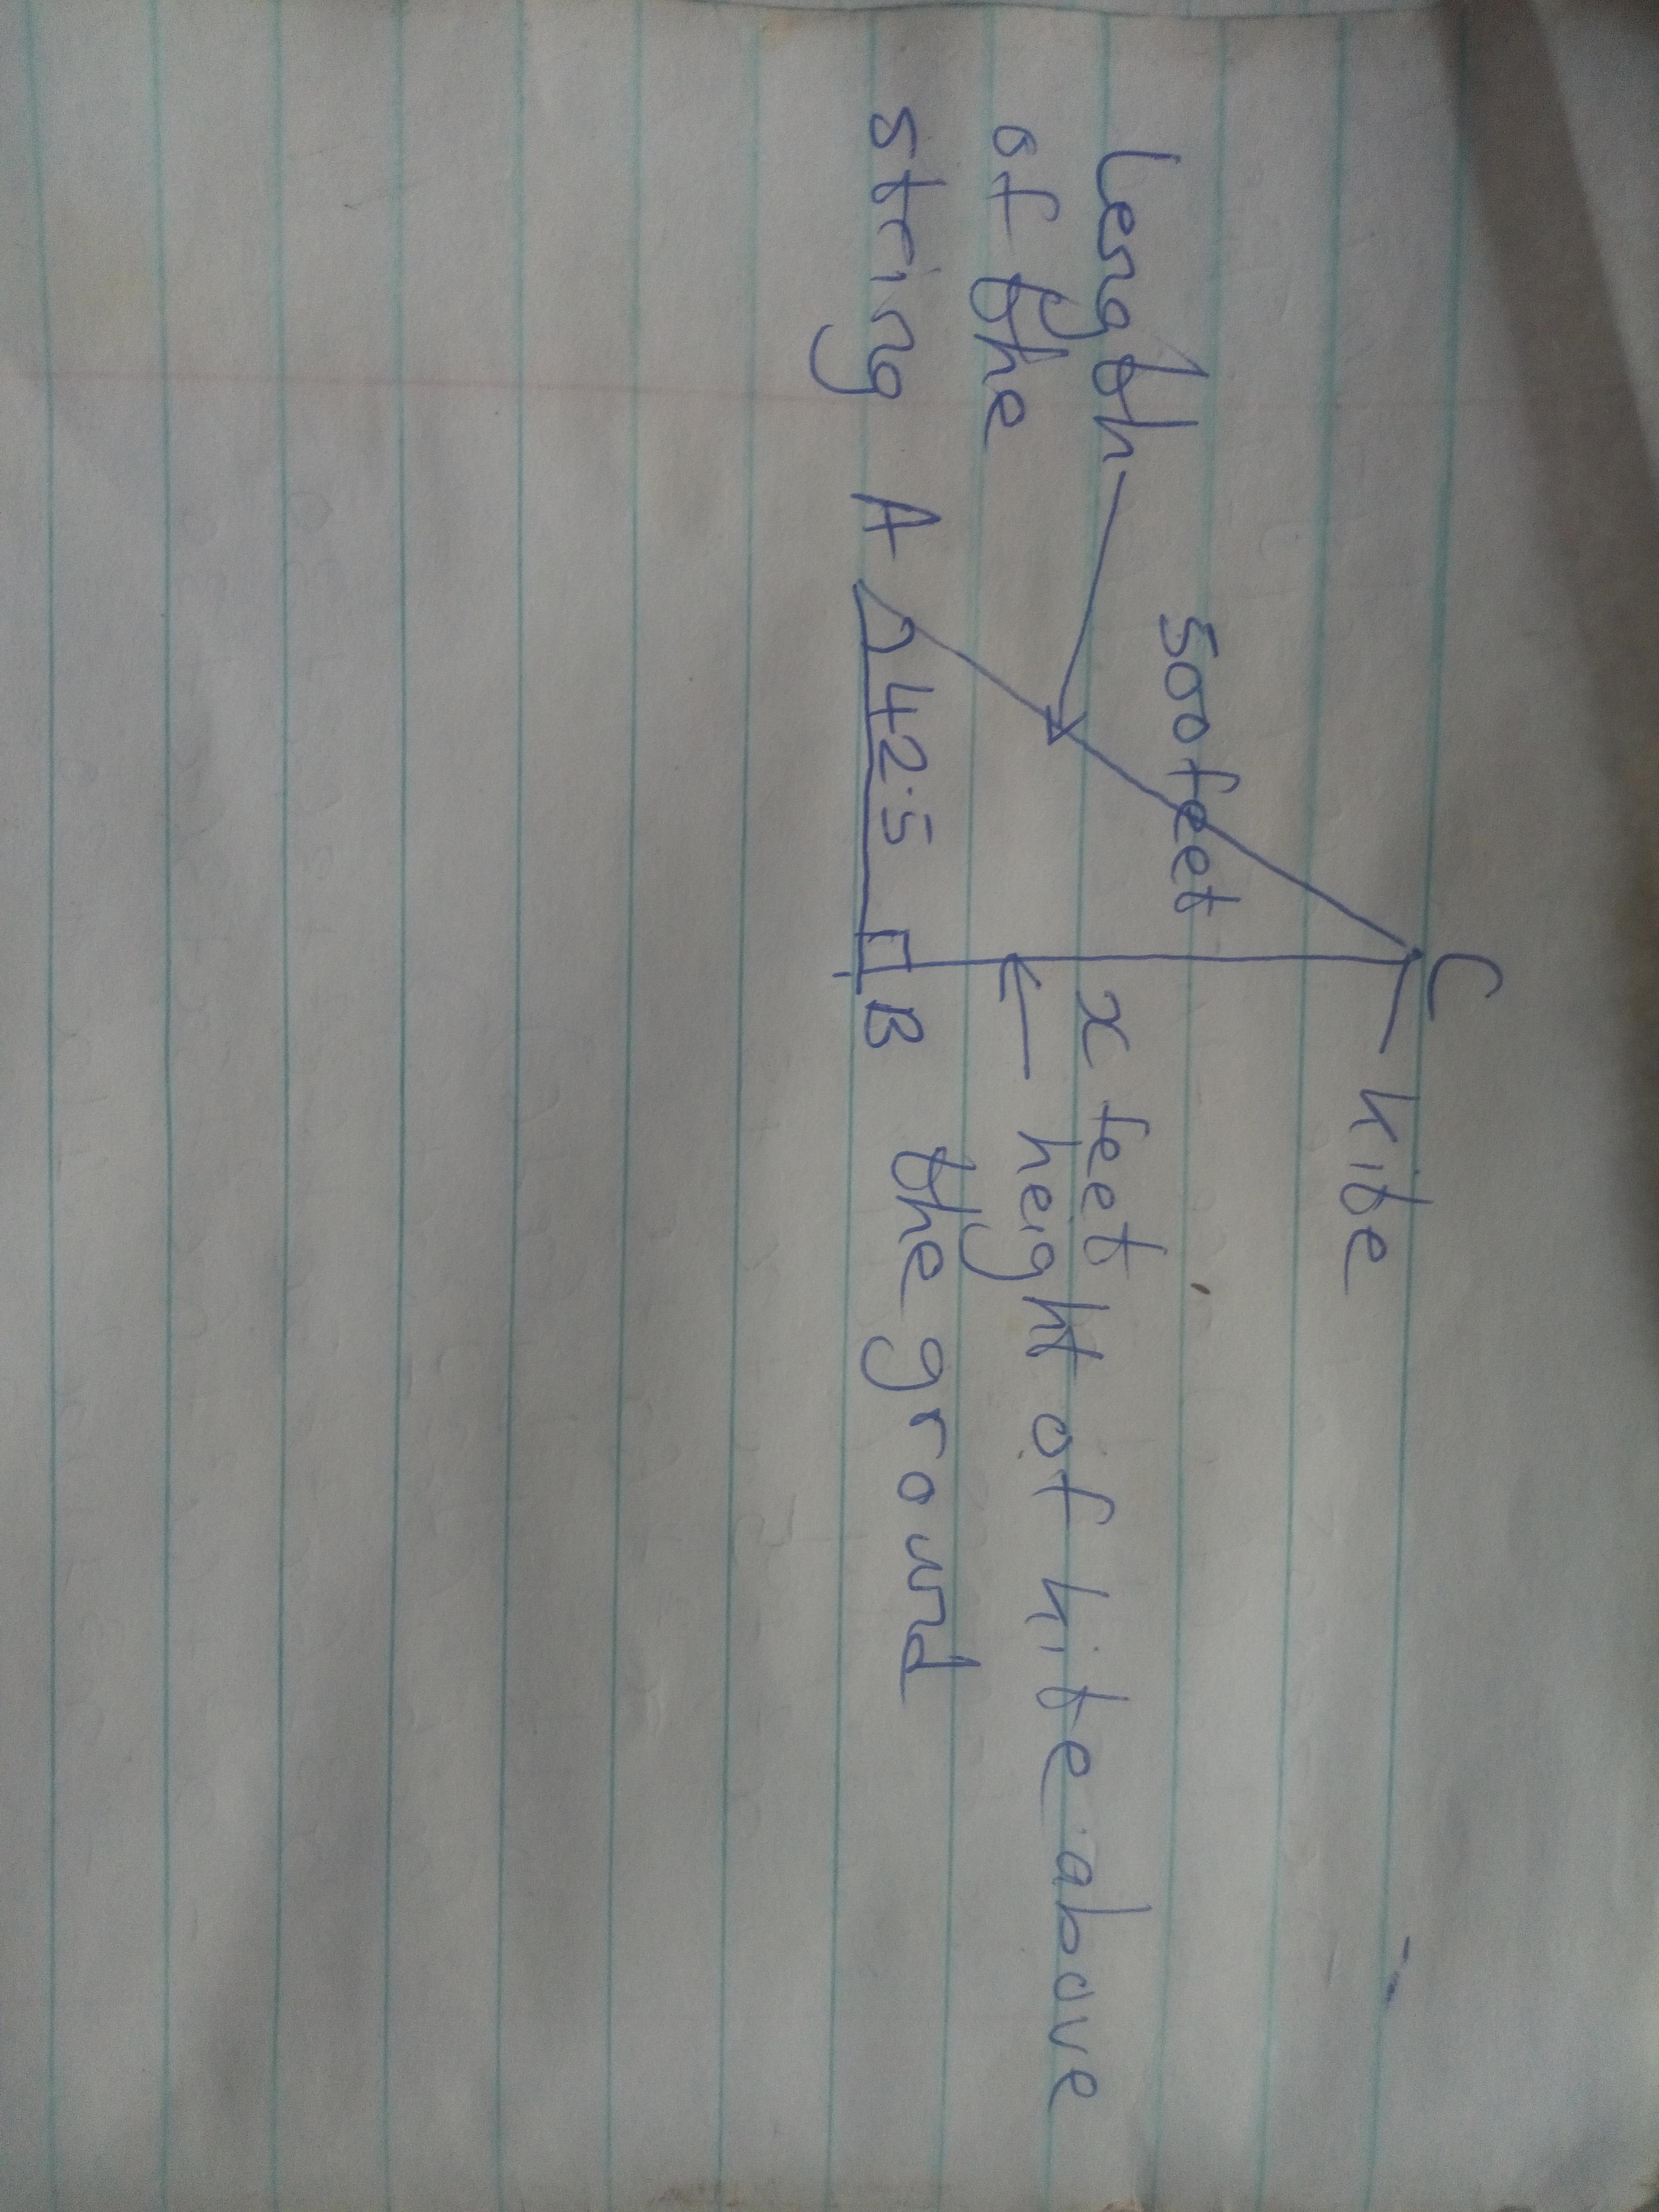 C
kite
500feet
Length
of the
string
x feet
height of kite above
the ground
A
42.5
B